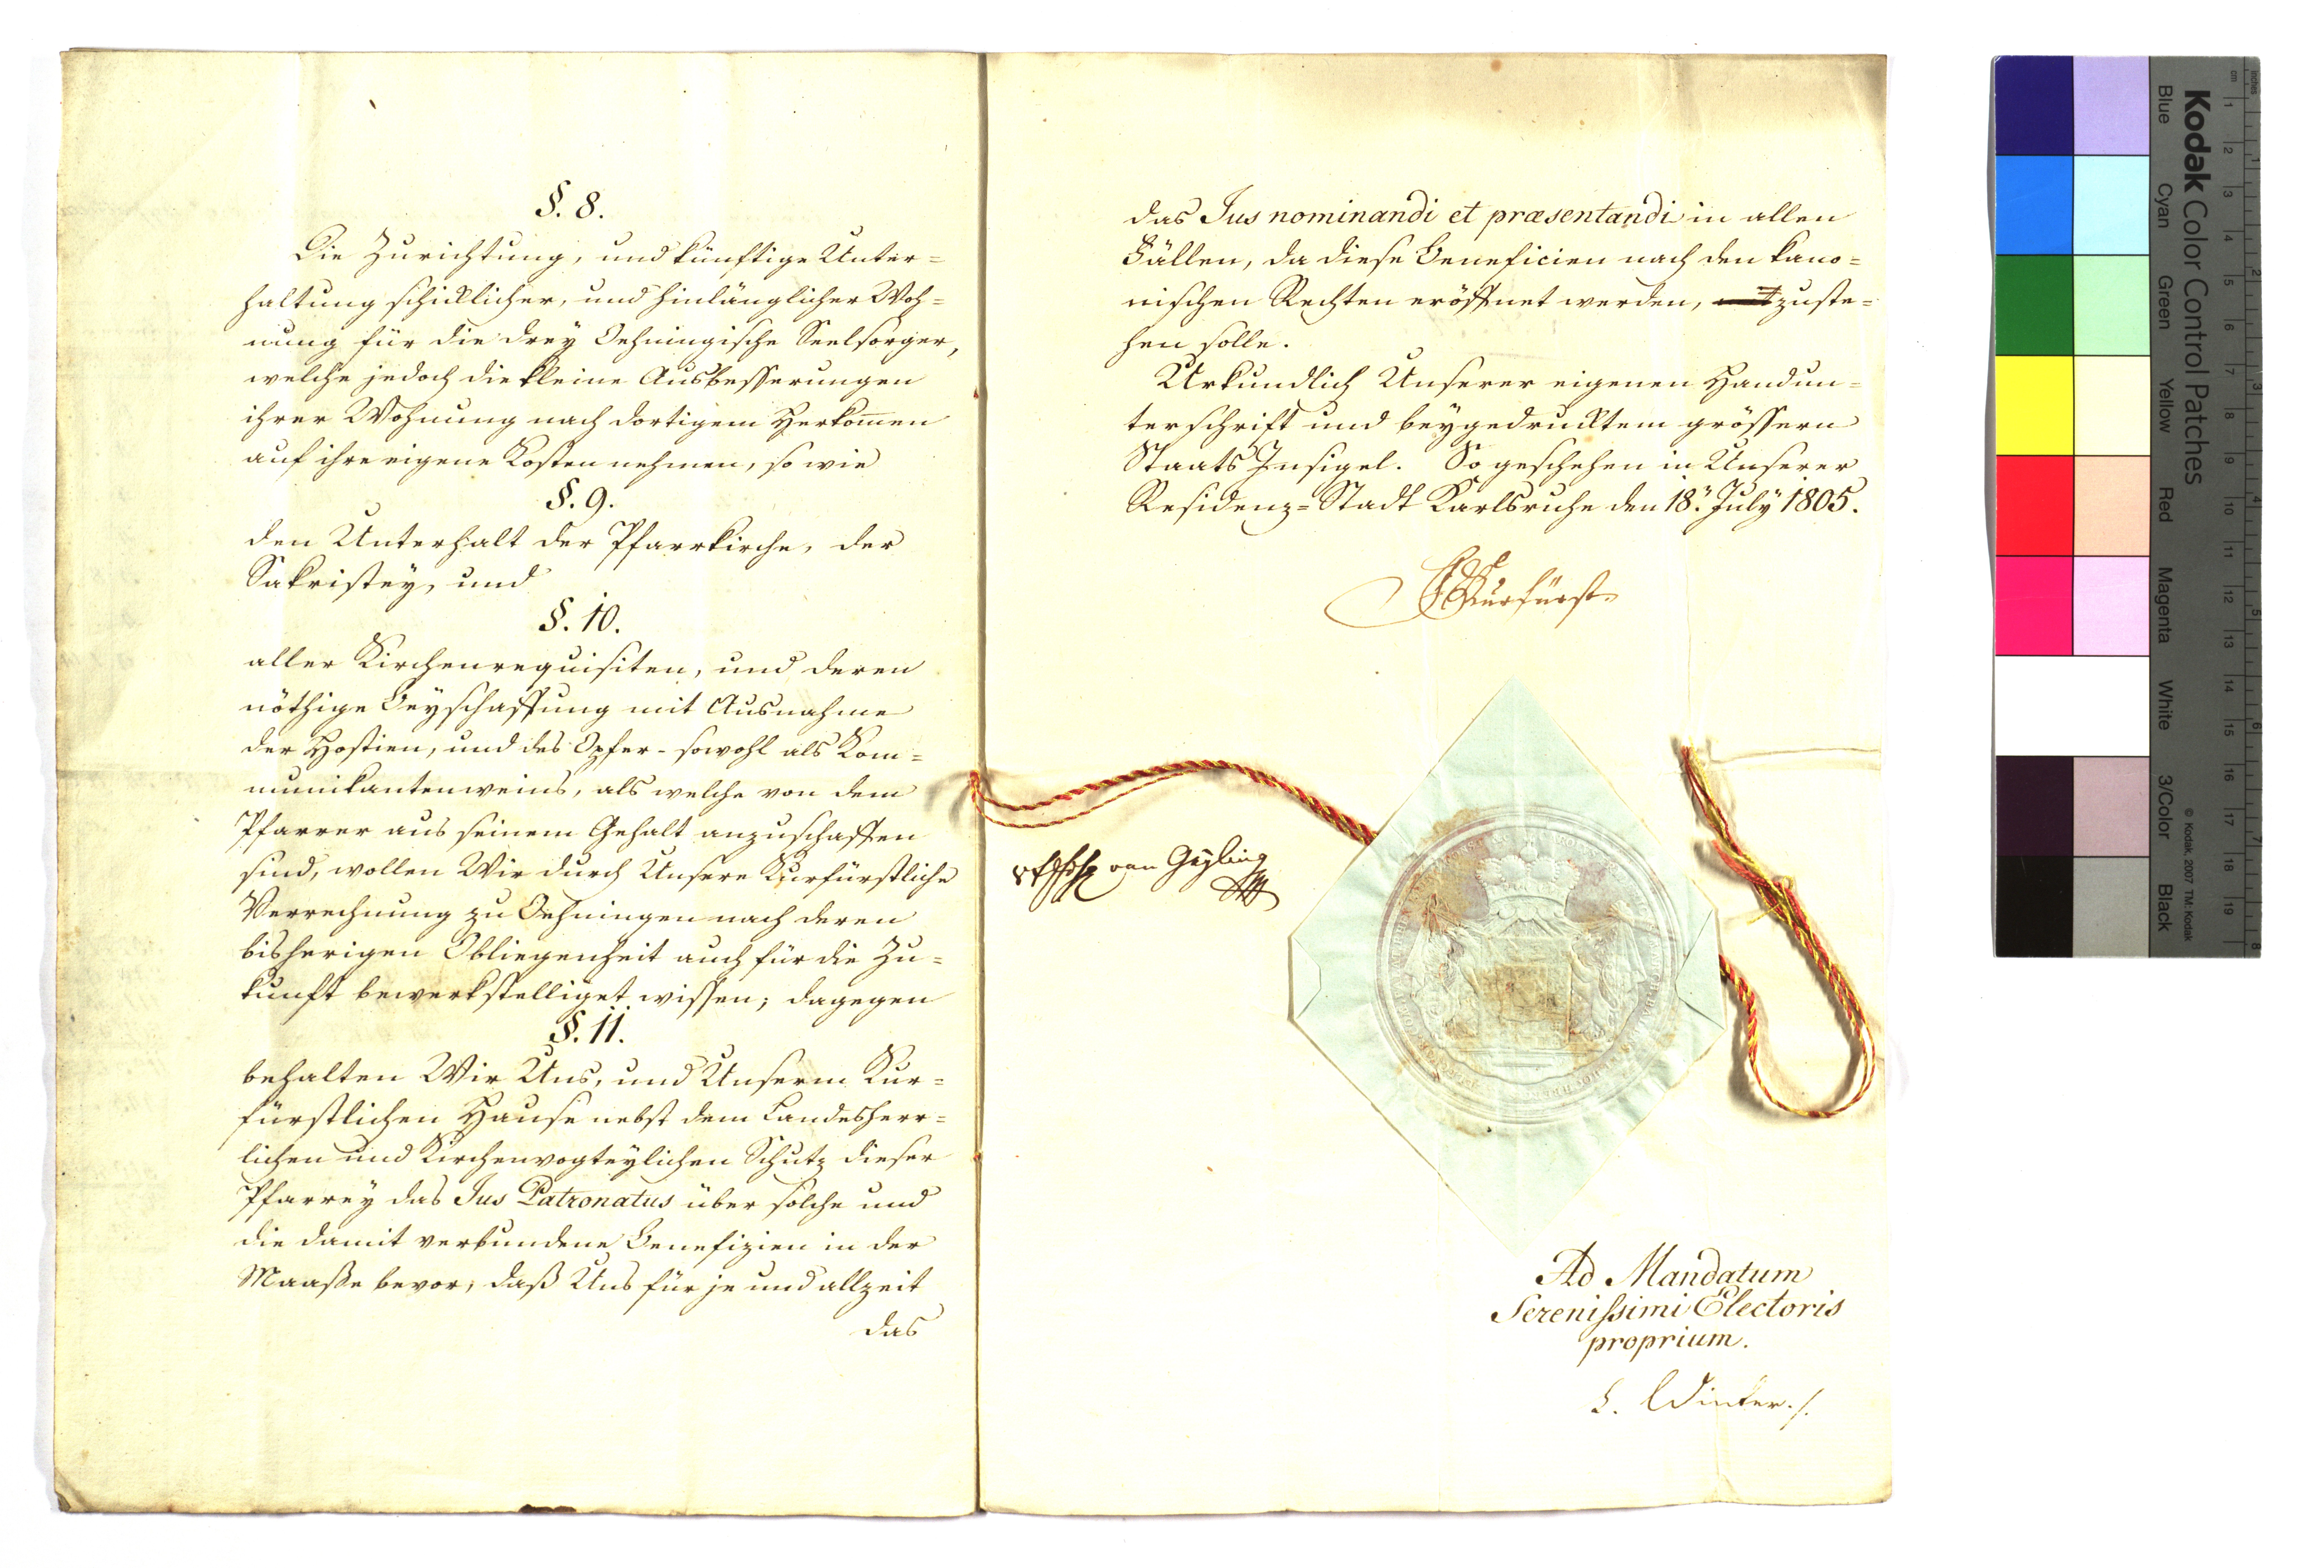 §. 8.
Die Zurichtung, und künftige Unter=
haltung schicklicher, und hinlänglicher Woh=
nung für die drey Oehningische Seelsorger,
welche jedoch die kleine Ausbesserungen
ihrer Wohnung nach dortigem Herkom̅en
auf ihre eigene Kosten nehmen, so wie
§. 9.
den Unterhalt der Pfarrkirche, der
Sakristey, und
§. 10.
aller Kirchenrequisiten, und deren
nöthige Beyschaffung mit Ausnahme
der Hostien, und des Opfer- sowohl als Kom=
munikantenweins, als welche von dem
Pfarrer aus seinem Gehalt anzuschaffen
sind, wollen Wir durch Unsere Kurfürstliche
Verrechnung zu Oehningen nach deren
bisherigen Obliegenheit auch für die Zu=
kunft bewerkstelliget wissen; dagegen
§. 11.
behalten Wir Uns, und Unserm Kur=
fürstlichen Hause nebst dem Landesherr=
lichen und Kirchenvogteylichen Schutz dieser
Pfarrey das Jus Patronatus über solche und
die damit verbundene Benefizien in der
Maaße bevor, daß Uns für je und allzeit
das
das Jus nominandi et præsentandi in allen
Fällen, da diese Beneficien nach den kano=
nischen Rechten eröffnet werden, zuste=
hen solle.
Urkundlich Unserer eigenen Handun=
terschrift und beygedrucktem grössern
Staats Insigel. So geschehen in Unserer
Residenz=Stadt Karlsruhe den 18. July 1805.
Kurfürst
von Geyling
Ad Mandatum
Serenissimi Electoris
proprium.
L. Winter
Kodak Color Control Patches
Blue Cyan Green Yellow Red Magenta White 3/Color Black
© Kodak, 2007 TM: Kodak
cm 1 2 3 4 5 6 7 8 9 10 11 12 13 14 15 16 17 18 19
inches 1 2 3 4 5 6 7 8